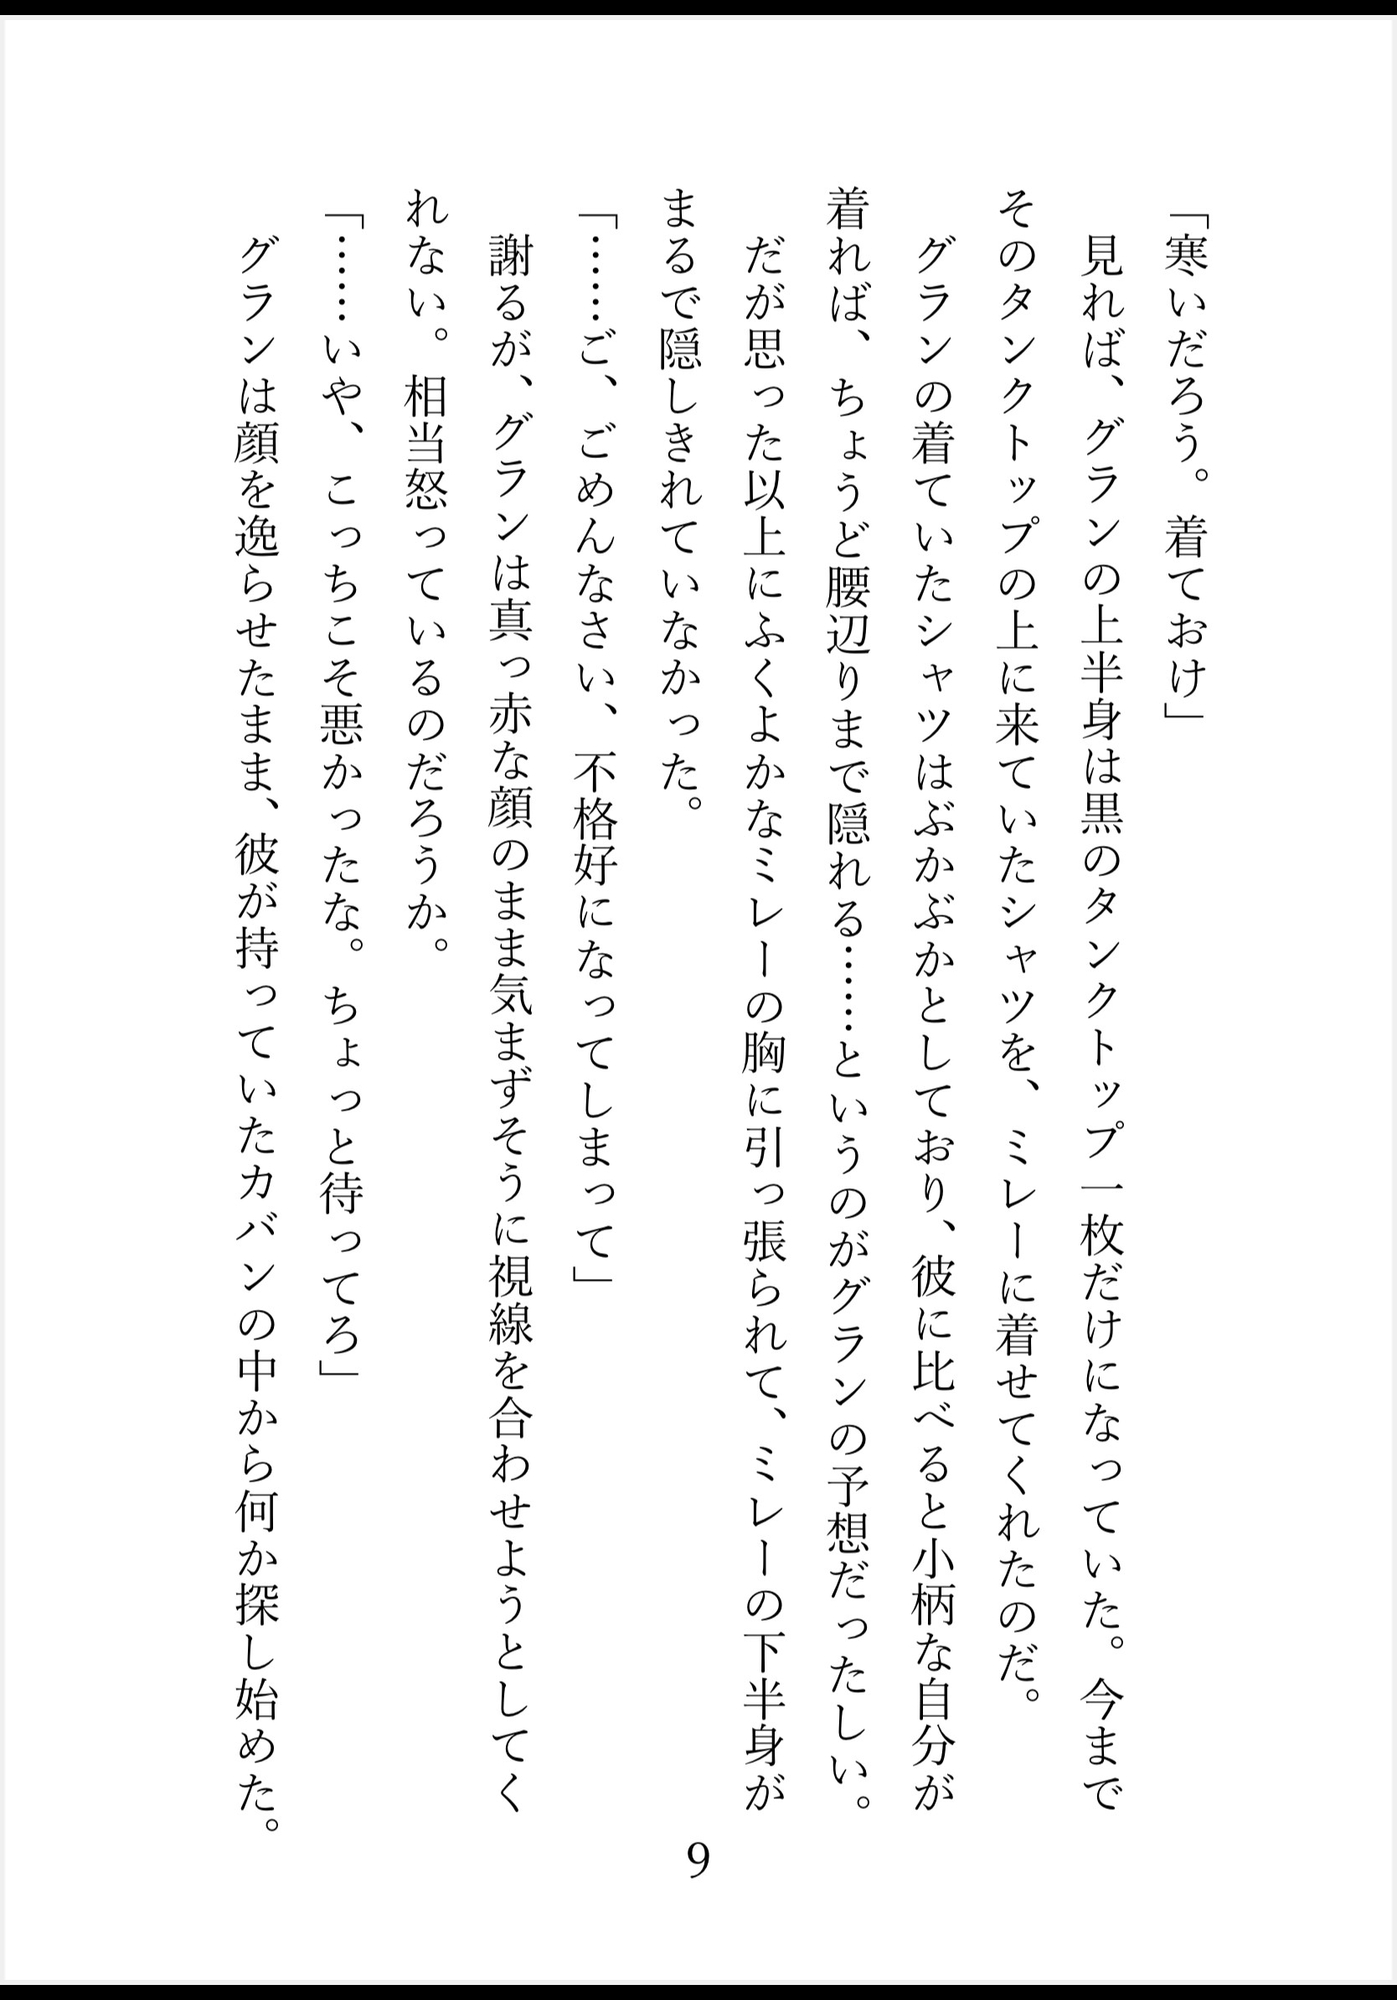 「寒いだろう。着ておけ」
見れば、グランの上半身は黒のタンクトップ一枚だけになっていた。今まで
そのタンクトップの上に来ていたシャツを、ミレーに着せてくれたのだ。
グランの着ていたシャツはぶかぶかとしており、彼に比べると小柄な自分が
着れば、ちょうど腰辺りまで隠れる……というのがグランの予想だったしい。
だが思った以上にふくよかなミレーの胸に引っ張られて、ミレーの下半身が
まるで隠しきれていなかった。
「……ご、ごめんなさい、不格好になってしまって」
謝るが、グランは真っ赤な顔のまま気まずそうに視線を合わせようとしてく
れない。相当怒っているのだろうか。
「……いや、こっちこそ悪かったな。ちょっと待ってろ」
グランは顔を逸らせたまま、彼が持っていたカバンの中から何か探し始めた。
9